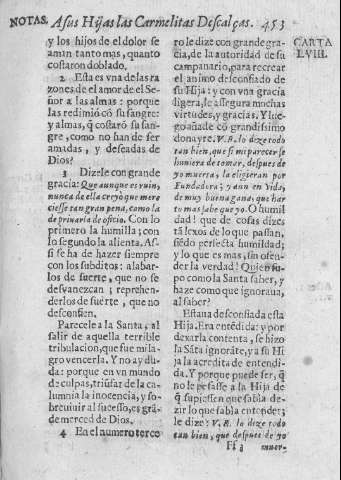 NOTAS. A sus Hijas las Carmelitas Descalças. 453
y los hijos de el dolor se
aman tanto mas, quanto
costaron doblado.
2 Esta es vna de las ra
zones de el amor de el Se-
ñor a las almas: porque
las redimió có su sangre:
y almas, q̃ costaró su san-
gre, como no han de ser
amadas, y deseadas de
Dios?
3 Dizele con grande
gracia: Que aunque es ruin,
nunca de ella creyo que mere
ciesse tan gran pena, como la
de priuarla de oficio. Con lo
primero la humilla; con
lo segundo la alienta. As-
si se ha de hazer siempre
con los subditos: alabar-
los de suerte, que no se
desvanezcan; reprehen-
derlos de suerte, que no
desconfien.
Parecele a la Santa, al
salir de aquella terrible
tribulacion, que fue mila-
gro vencerla. Y no ay du-
da: porque en vn mundo
de culpas, triũfar de la ca-
lumnia la inocencia, y so-
breuiuir al sucesso, es grã-
de merced de Dios.
4 En el numero terce
ro le dize con grande gra-
cia, de la autoridad de su
campanario, para recrear
el animo desconfiado de
su Hija: y con vna gracia
digera, le assegura muchas
virtudes, y gracias. Y lue-
go añade có grandissimo
donayre. V. R. lo dize todo
tan bien, que si mi parecer se
huuiera de tomar, despues de
yo muerta, la eligieran por
Fundadora; y aun en vida,
de muy buena gana; que har
to mas sabe que yo. O humil
dad! que de cosas dize:
tã lexos de lo que passan,
siẽdo perfecta humildad;
y lo que es mas, sin ofen-
der la verdad! Quien su-
po como la Santa saber, y
haze como que ignoraua,
al saber?
Estaua desconfiada esta
Hija. Era entẽdida: y por
dexarla contenta, se hizo
la Sãta ignorãte, y a su Hi
ja la acredita de entendi-
da. Y porque puede ser, q̃
no le pesasse a la Hija de
q̃ supiessen que sabia de-
zir lo que sabia entender;
le dize: V. R. lo dize todo
tan bien, que despues de yo
Ff 3 muer-
CARTA
LVIII.